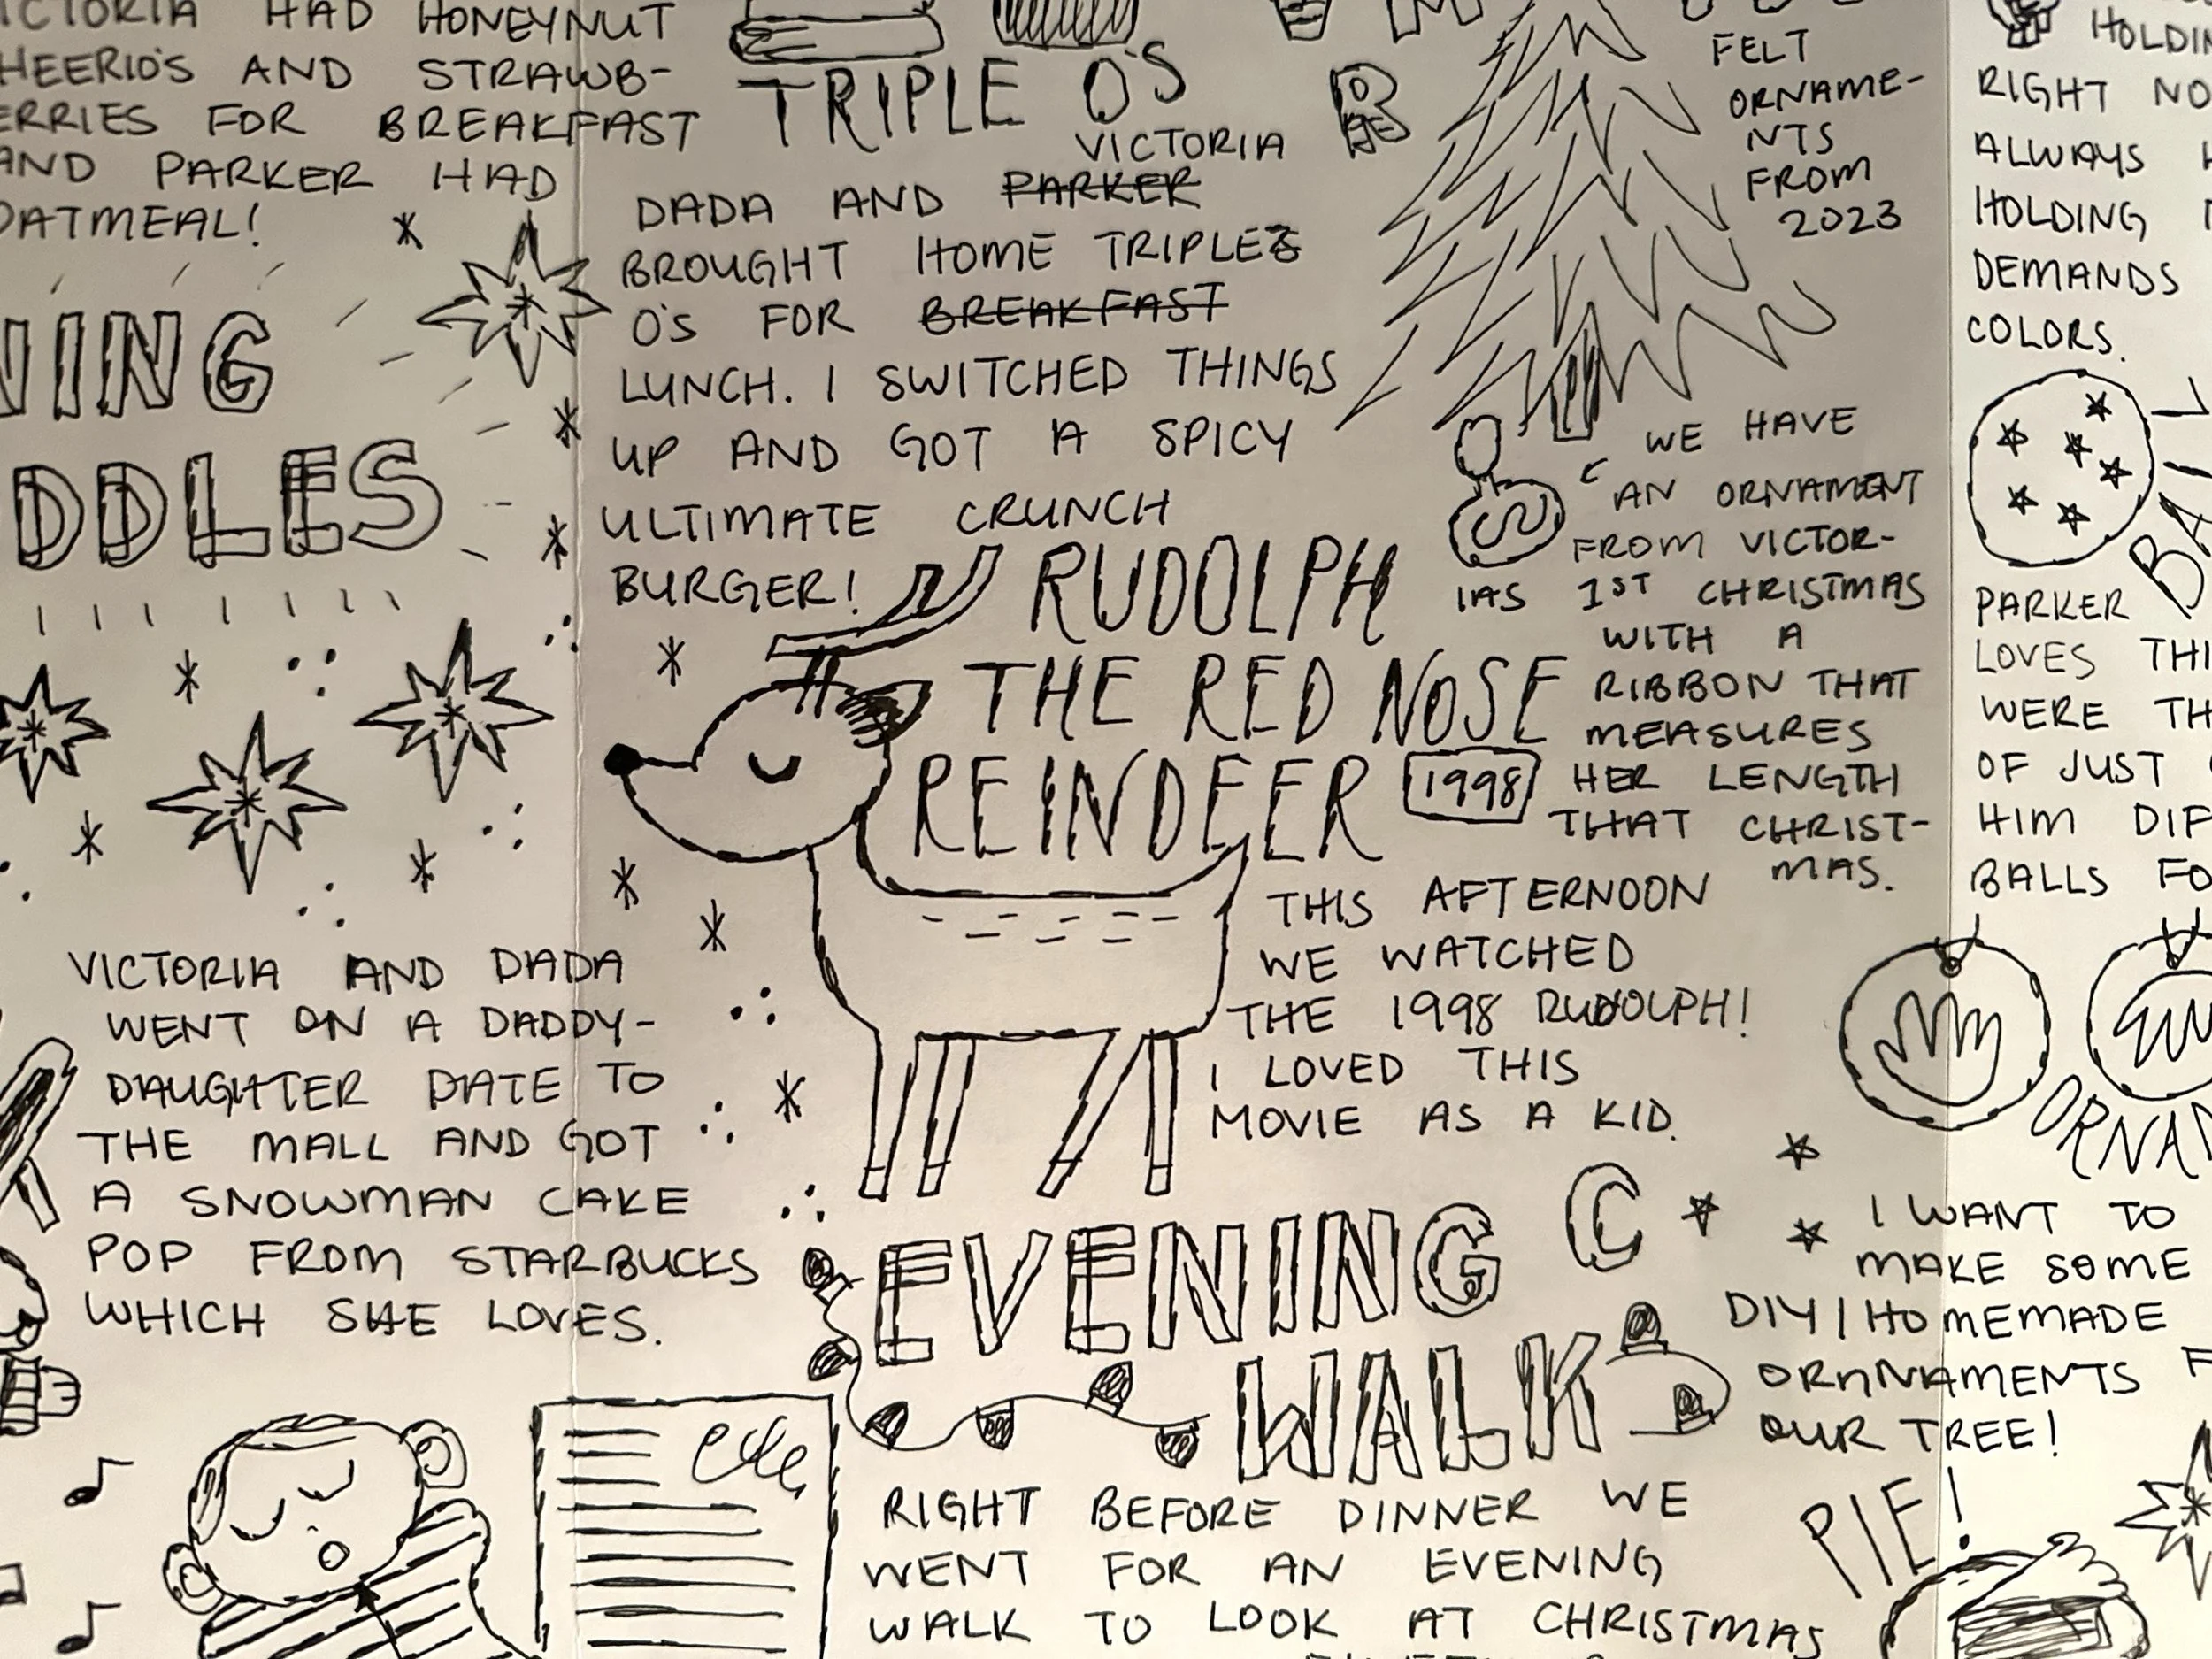 VICTORIA HAD HONEYNUT
CHEERIO'S AND STRAWB-
ERRIES FOR BREAKFAST
AND PARKER HAD
OATMEAL!
NING
DDLES
VICTORIA AND DADA
WENT ON A DADDY-
DAUGHTER DATE TO
THE MALL AND GOT
A SNOWMAN CAKE
POP FROM STARBUCKS
WHICH SHE LOVES.
TRIPLE O'S
VICTORIA
DADA AND PARKER
BROUGHT HOME TRIPLE
O'S FOR BREAKFAST
LUNCH. I SWITCHED THINGS
UP AND GOT A SPICY
ULTIMATE CRUNCH
BURGER!
RUDOLPH
THE RED NOSE
REINDEER 1998
THIS AFTERNOON
WE WATCHED
THE 1998 RUDOLPH!
I LOVED THIS
MOVIE AS A KID.
EVENING
WALK
RIGHT BEFORE DINNER WE
WENT FOR AN EVENING
WALK TO LOOK AT CHRISTMAS
FELT
ORNAME-
NTS
FROM
2023
WE HAVE
AN ORNAMENT
FROM VICTOR-
IAS 1ST CHRISTMAS
WITH A
RIBBON THAT
MEASURES
HER LENGTH
THAT CHRIST-
MAS.
HOLDIN
RIGHT NO
ALWAYS H
HOLDING
DEMANDS
COLORS.
BALL
PARKER
LOVES THI
WERE TH
OF JUST
HIM DIF
BALLS FO
ORNA
I WANT TO
MAKE SOME
DIY/HOMEMADE
ORNNAMENTS F
OUR TREE!
PIE!